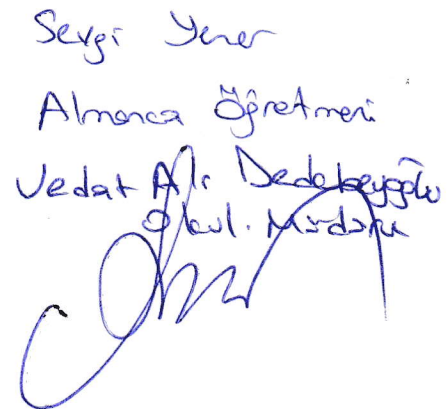 Sevgi Yener
Almanca Öğretmeni
Vedat Ali Dedebeyoğlu
Okul Müdürü